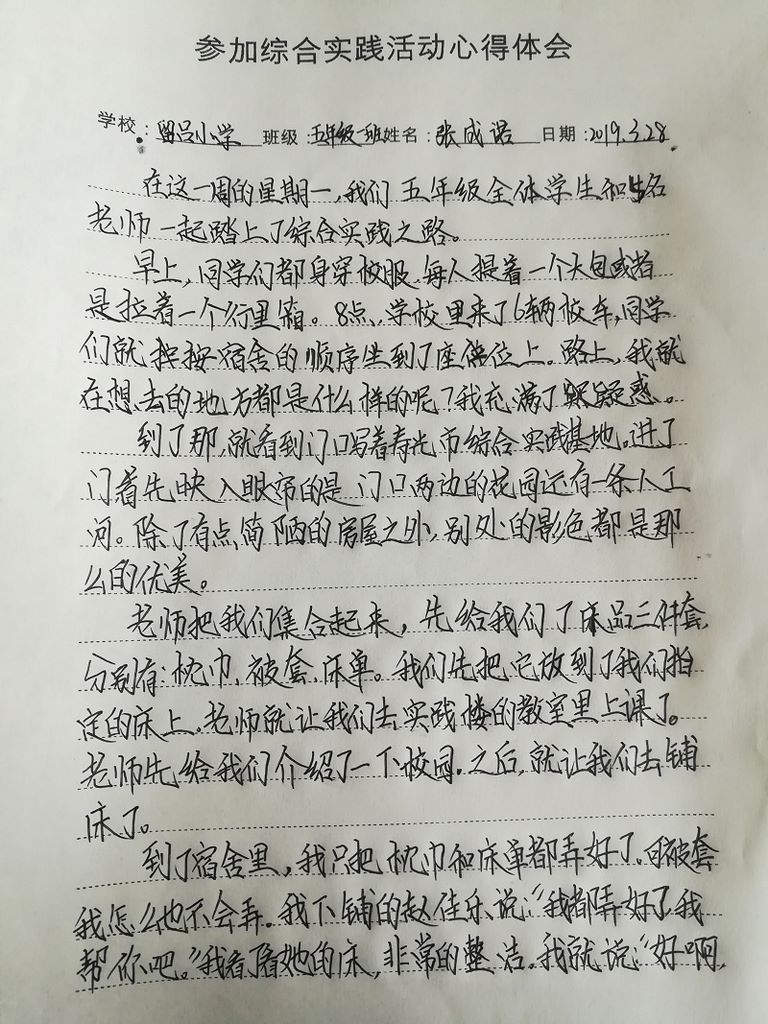 参加综合实践活动心得体会
学校：留吕小学 班级：五年级一班 姓名：张成诺 日期：2019.3.28.
在这一周的星期一，我们五年级全体学生和5名
老师一起踏上了综合实践之路。
早上，同学们都身穿校服，每人提着一个大包或者
是拉着一个行里箱。8点，学校里来了6辆校车，同学
们就按宿舍的顺序坐到了座位上。路上，我就
在想，去的地方都是什么样的呢？我充满了疑惑。
到了那，就看到门口写着寿光市综合实践基地。进了
门首先映入眼帘的是门口两边的花园还有一条人工
河。除了有点简陋的房屋之外，别处的景色都是那
么的优美。
老师把我们集合起来，先给我们了床品三件套，
分别有：枕巾、被套、床单。我们先把它放到了我们指
定的床上，老师就让我们去实践楼的教室里上课了。
老师先给我们介绍了一下校园，之后，就让我们去铺
床了。
到了宿舍里，我只把枕巾和床单都弄好了。被套
我怎么也不会弄。我下铺的赵佳乐说：“我都弄好了，我
帮你吧。”我看了看她的床，非常的整洁。我就说：“好啊，